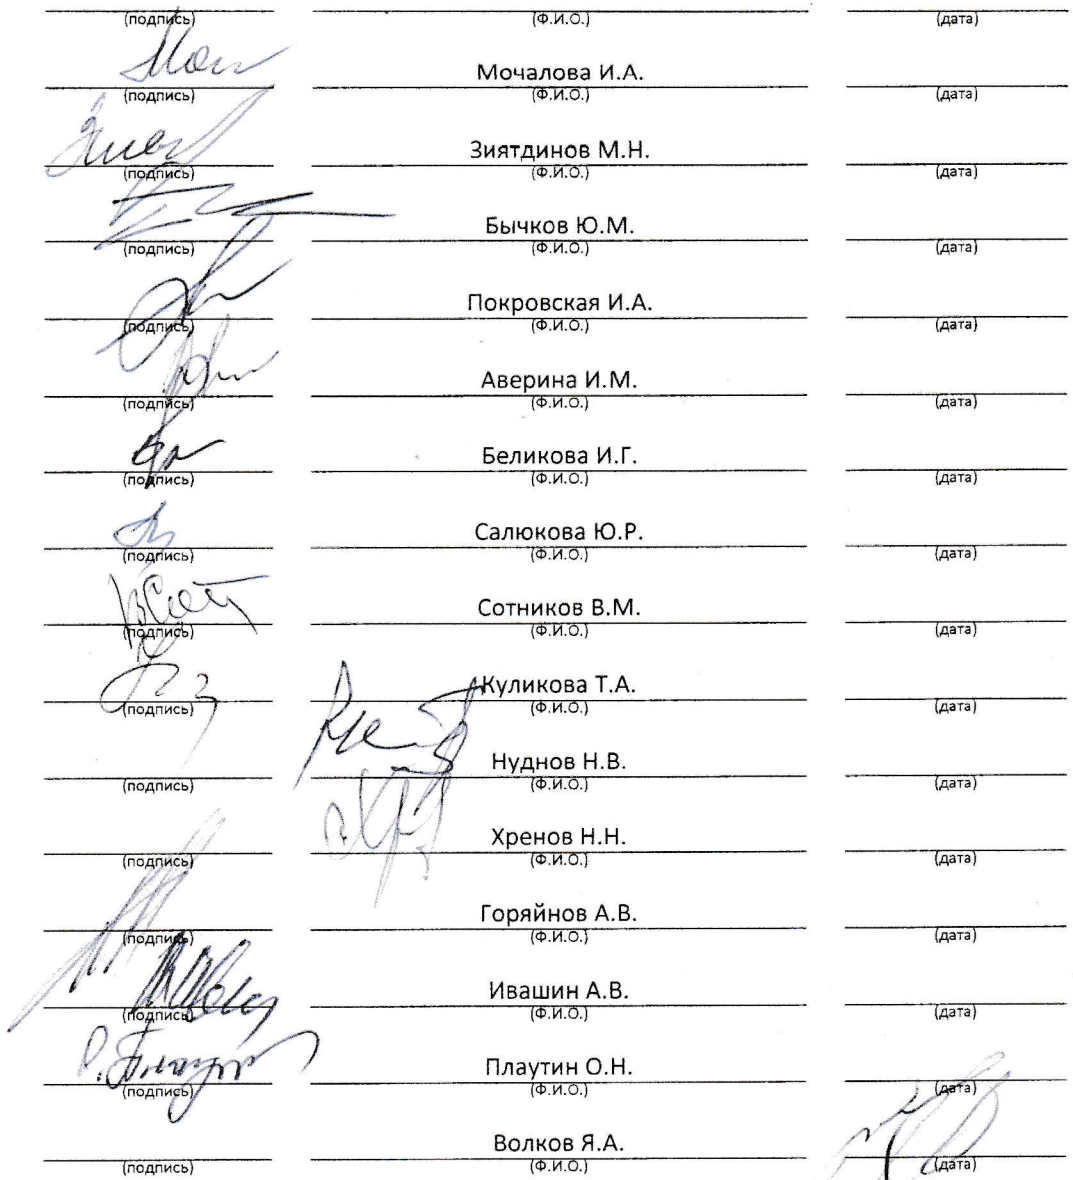 (подпись) (Ф.И.О.) (дата)
Мочалова И.А.
(подпись) (Ф.И.О.) (дата)
Зиятдинов М.Н.
(подпись) (Ф.И.О.) (дата)
Бычков Ю.М.
(подпись) (Ф.И.О.) (дата)
Покровская И.А.
(подпись) (Ф.И.О.) (дата)
Аверина И.М.
(подпись) (Ф.И.О.) (дата)
Беликова И.Г.
(подпись) (Ф.И.О.) (дата)
Салюкова Ю.Р.
(подпись) (Ф.И.О.) (дата)
Сотников В.М.
(подпись) (Ф.И.О.) (дата)
Куликова Т.А.
(подпись) (Ф.И.О.) (дата)
Нуднов Н.В.
(подпись) (Ф.И.О.) (дата)
Хренов Н.Н.
(подпись) (Ф.И.О.) (дата)
Горяйнов А.В.
(подпись) (Ф.И.О.) (дата)
Ивашин А.В.
(подпись) (Ф.И.О.) (дата)
Плаутин О.Н.
(подпись) (Ф.И.О.) (дата)
Волков Я.А.
(подпись) (Ф.И.О.) (дата)